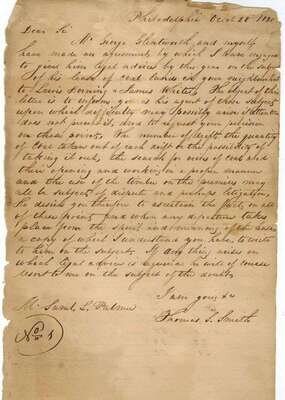 Philadelphia Oct 28 18
Dear Sir
Mr George Glentworth, and myself
have made an agreement by which I have engaged
to give him legal advice by this year on the subject
of his lease of coal lands in your neighborhood
to Lewis Dorning & James White. The object of this
letter is to inform you as his agent of those subjects
upon which difficulty may possibly arise if attention
does not prevent it, and to request your vision
on these points. The number of drifts the quantity
of coal taken out of each drift or the possibility of
taking it out, the search for veins of coal and
their opening and working in a proper manner
and the use of the timber on the premises may
all be subjects of dispute and perhaps litigation.
He desires you therefore to ascertain the facts, on all
of these points and when any departure takes
place from the spirit and meaning of the lease
a copy of which I understand you have, to write
to him on the subject. If any thing arises on
which legal advice is required he will of course
resort to me on the subject of the doubt.
I am yours &c
Thomas S. Smith
Mr Saml. L. Palmer
No 1